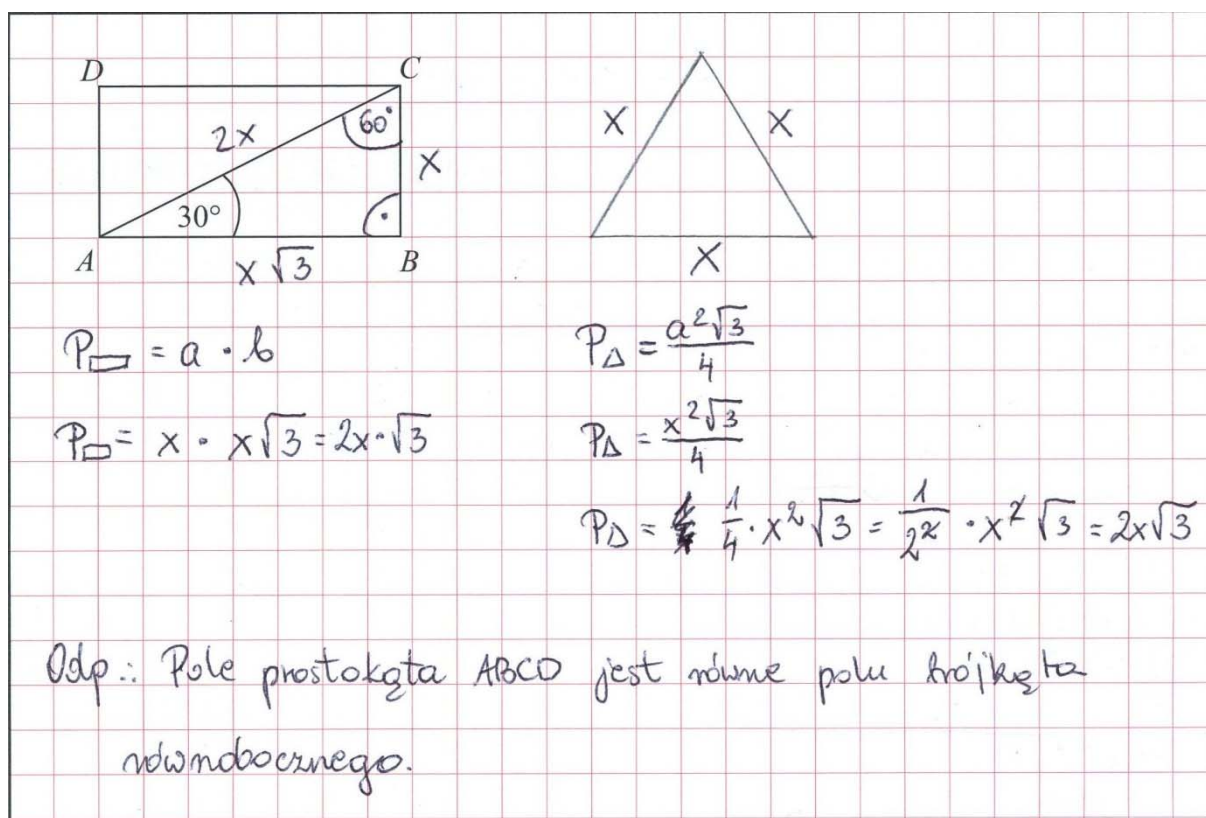 D C
2x 60° x
30°
A B
x√3
x x
x
P▭ = a · b
P▭ = x · x√3 = 2x · √3
P△ = a²√3/4
P△ = x²√3/4
P△ = 1/4 · x²√3 = 1/2² · x²√3 = 2x√3
Odp.: Pole prostokąta ABCD jest równe polu trójkąta
równobocznego.